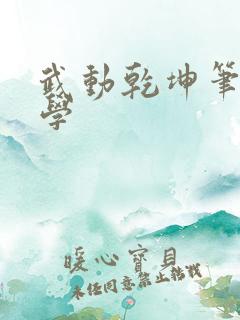 武動乾坤筆
學
暖心寶貝
未經同意禁止轉載